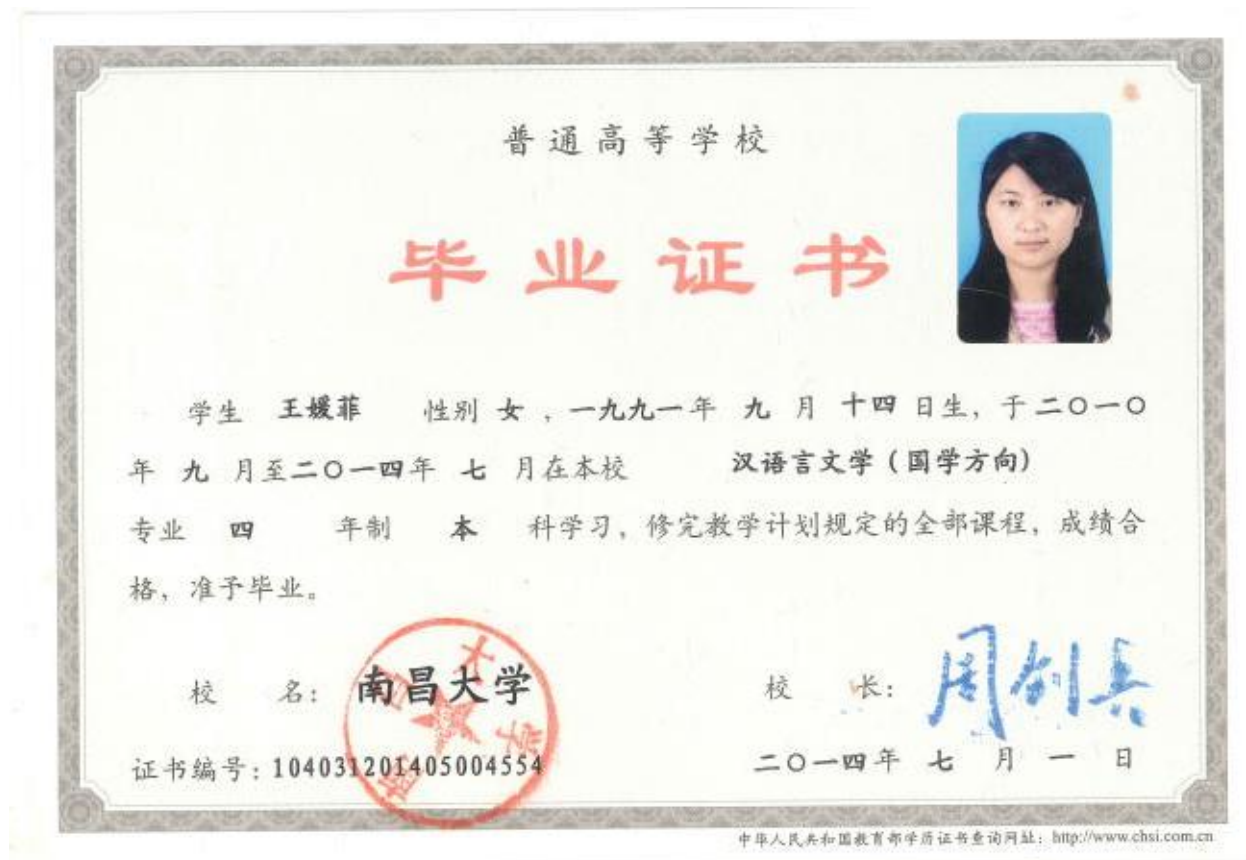 普通高等学校
毕业证书
学生 王媛菲 性别 女 ，一九九一年 九 月 十四 日生，于二〇一〇
年 九 月至二〇一四年 七 月在本校 汉语言文学（国学方向）
专业 四 年制 本 科学习，修完教学计划规定的全部课程，成绩合
格，准予毕业。
校 名： 南昌大学
南昌大学
校 长： 周创兵
证书编号：104031201405004554
二〇一四年 七 月 一 日
中华人民共和国教育部学历证书查询网址：http://www.chsi.com.cn